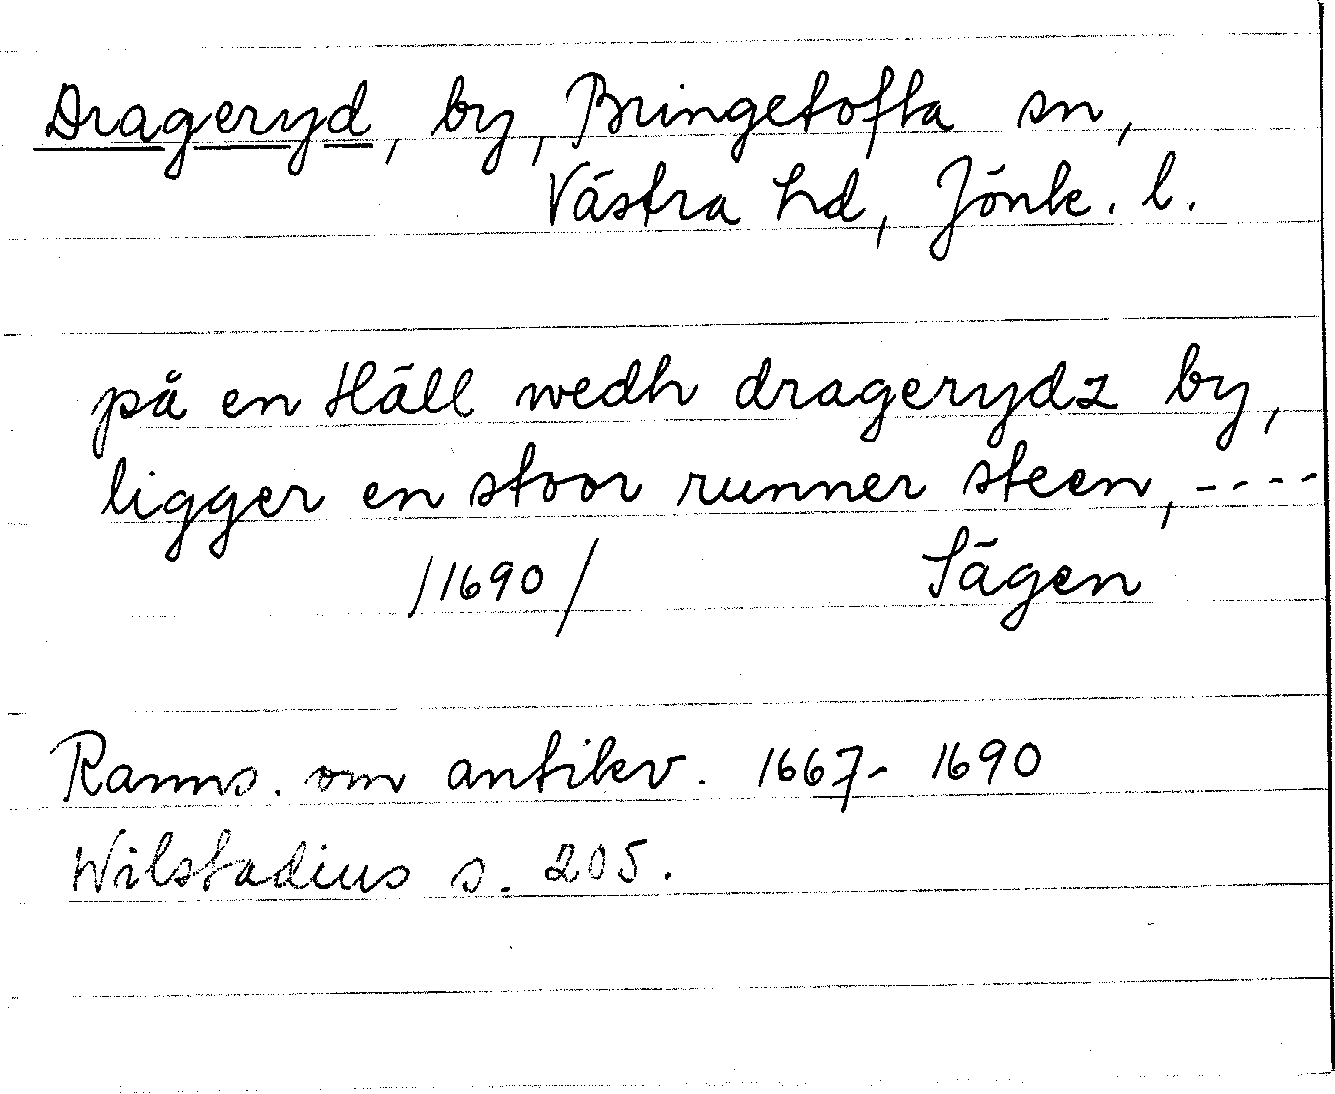 Drageryd, by, Bringetofta sn,
Västra hd, Jönk. l.
på en Häll wedh dragerydz by,
ligger en stoor runner steen, ----
/1690/ Sägen
Ranns. om antikv. 1667- 1690
Wilstadius s. 205.